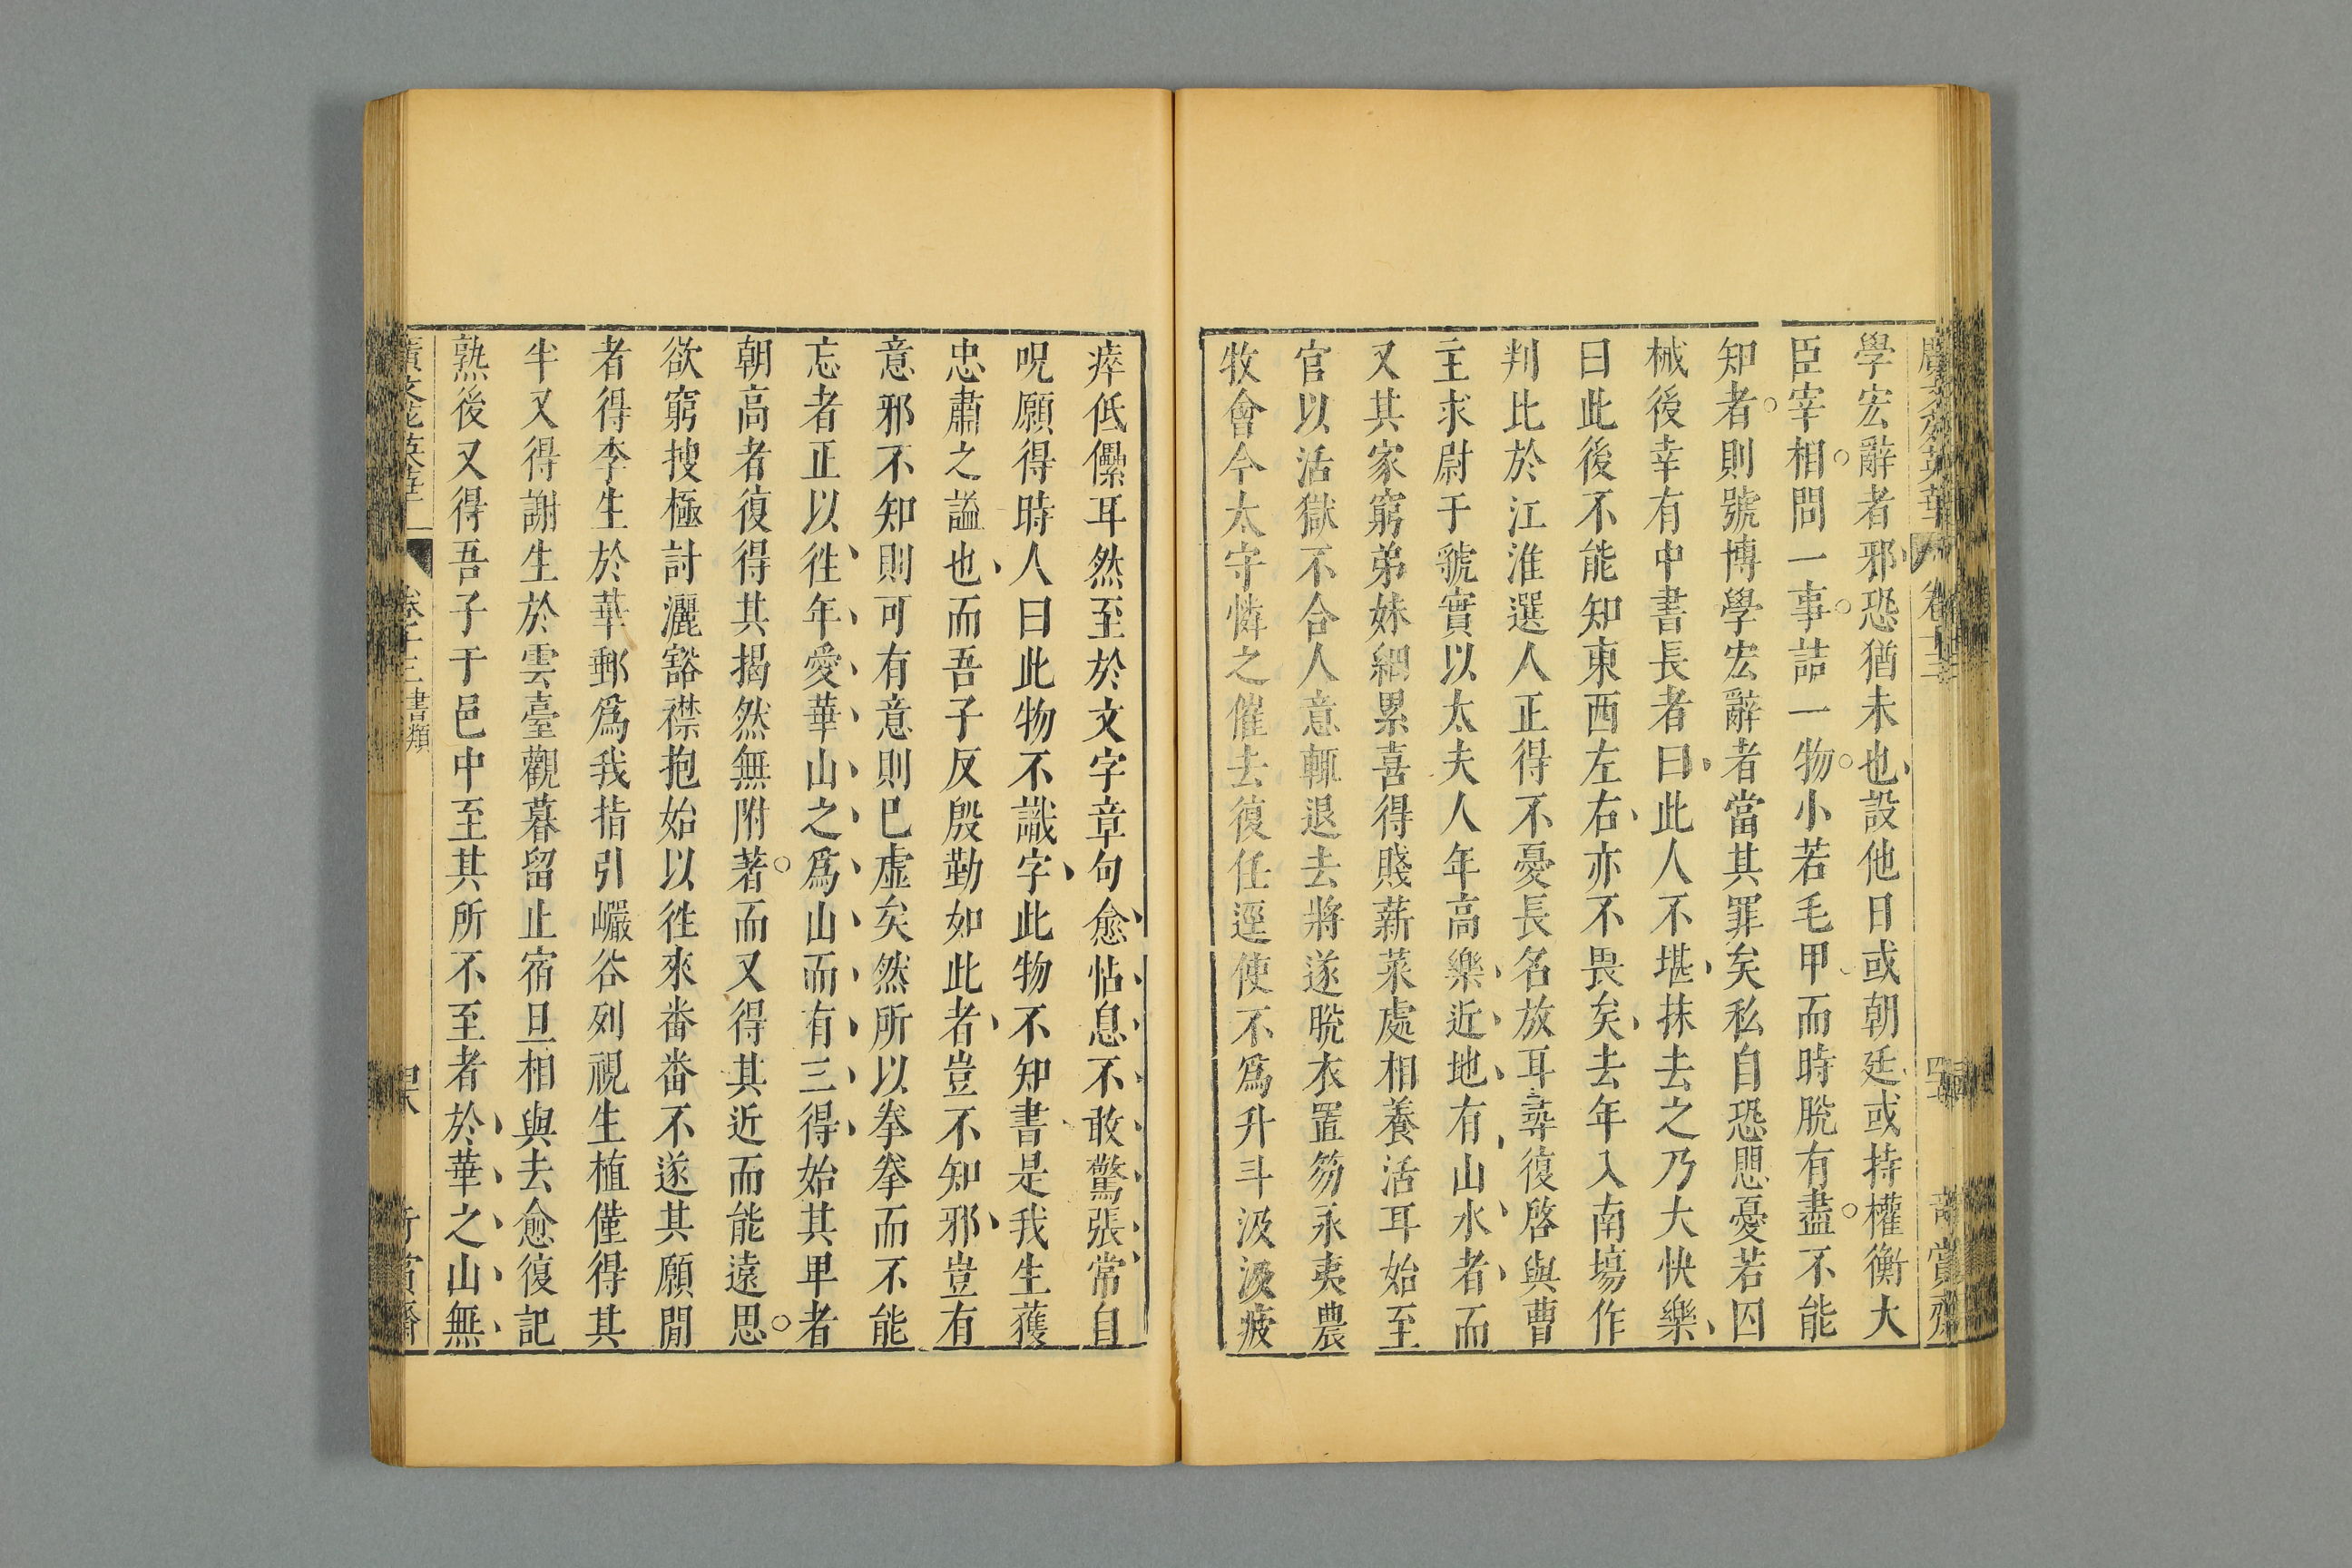 學宏辭者邪恐猶未也設他日或朝廷或持權衡大
臣宰相問一事詰一物小若毛甲而時脫有盡不能
知者則號博學宏辭者當其罪矣私自恐悒憂若囚
械後幸有中書長者曰此人不堪抹去之乃大快樂
曰此後不能知東西左右亦不畏矣去年入南場作
判比於江淮選人正得不憂長名放耳尋復啓與曹
主求尉于虢實以太夫人年高樂近地有山水者而
又其家窮弟妹細累喜得賤薪菜處相養活耳始至
官以活獄不合人意輒退去將遂脫衣置笏永夷農
牧會今太守憐之催去復任逕使不爲升斗汲汲疲
瘁低儽耳然至於文字章句愈帖息不敢驚張常自
呪願得時人曰此物不識字此物不知書是我生獲
忠肅之謚也而吾子反殷勤如此者豈不知邪豈有
意邪不知則可有意則已虛矣然所以拳拳而不能
忘者正以徃年愛華山之爲山而有三得始其甲者
朝高者復得其揭然無附著而又得其近而能遠思
欲窮搜極討灑豁襟抱始以徃來番番不遂其願閒
者得李生於華郵爲我指引巖谷列視生植僅得其
半又得謝生於雲臺觀暮留止宿旦相與去愈復記
熟後又得吾子于邑中至其所不至者於華之山無
卷十三書類